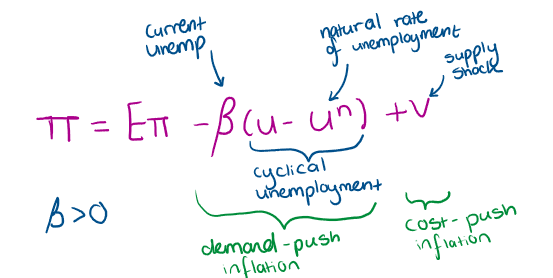 current
unemp
natural rate
of unemployment
supply
shock
π = Eπ - β(u - uⁿ) + v
cyclical
unemployment
β>0
demand-push
inflation
cost-push
inflation